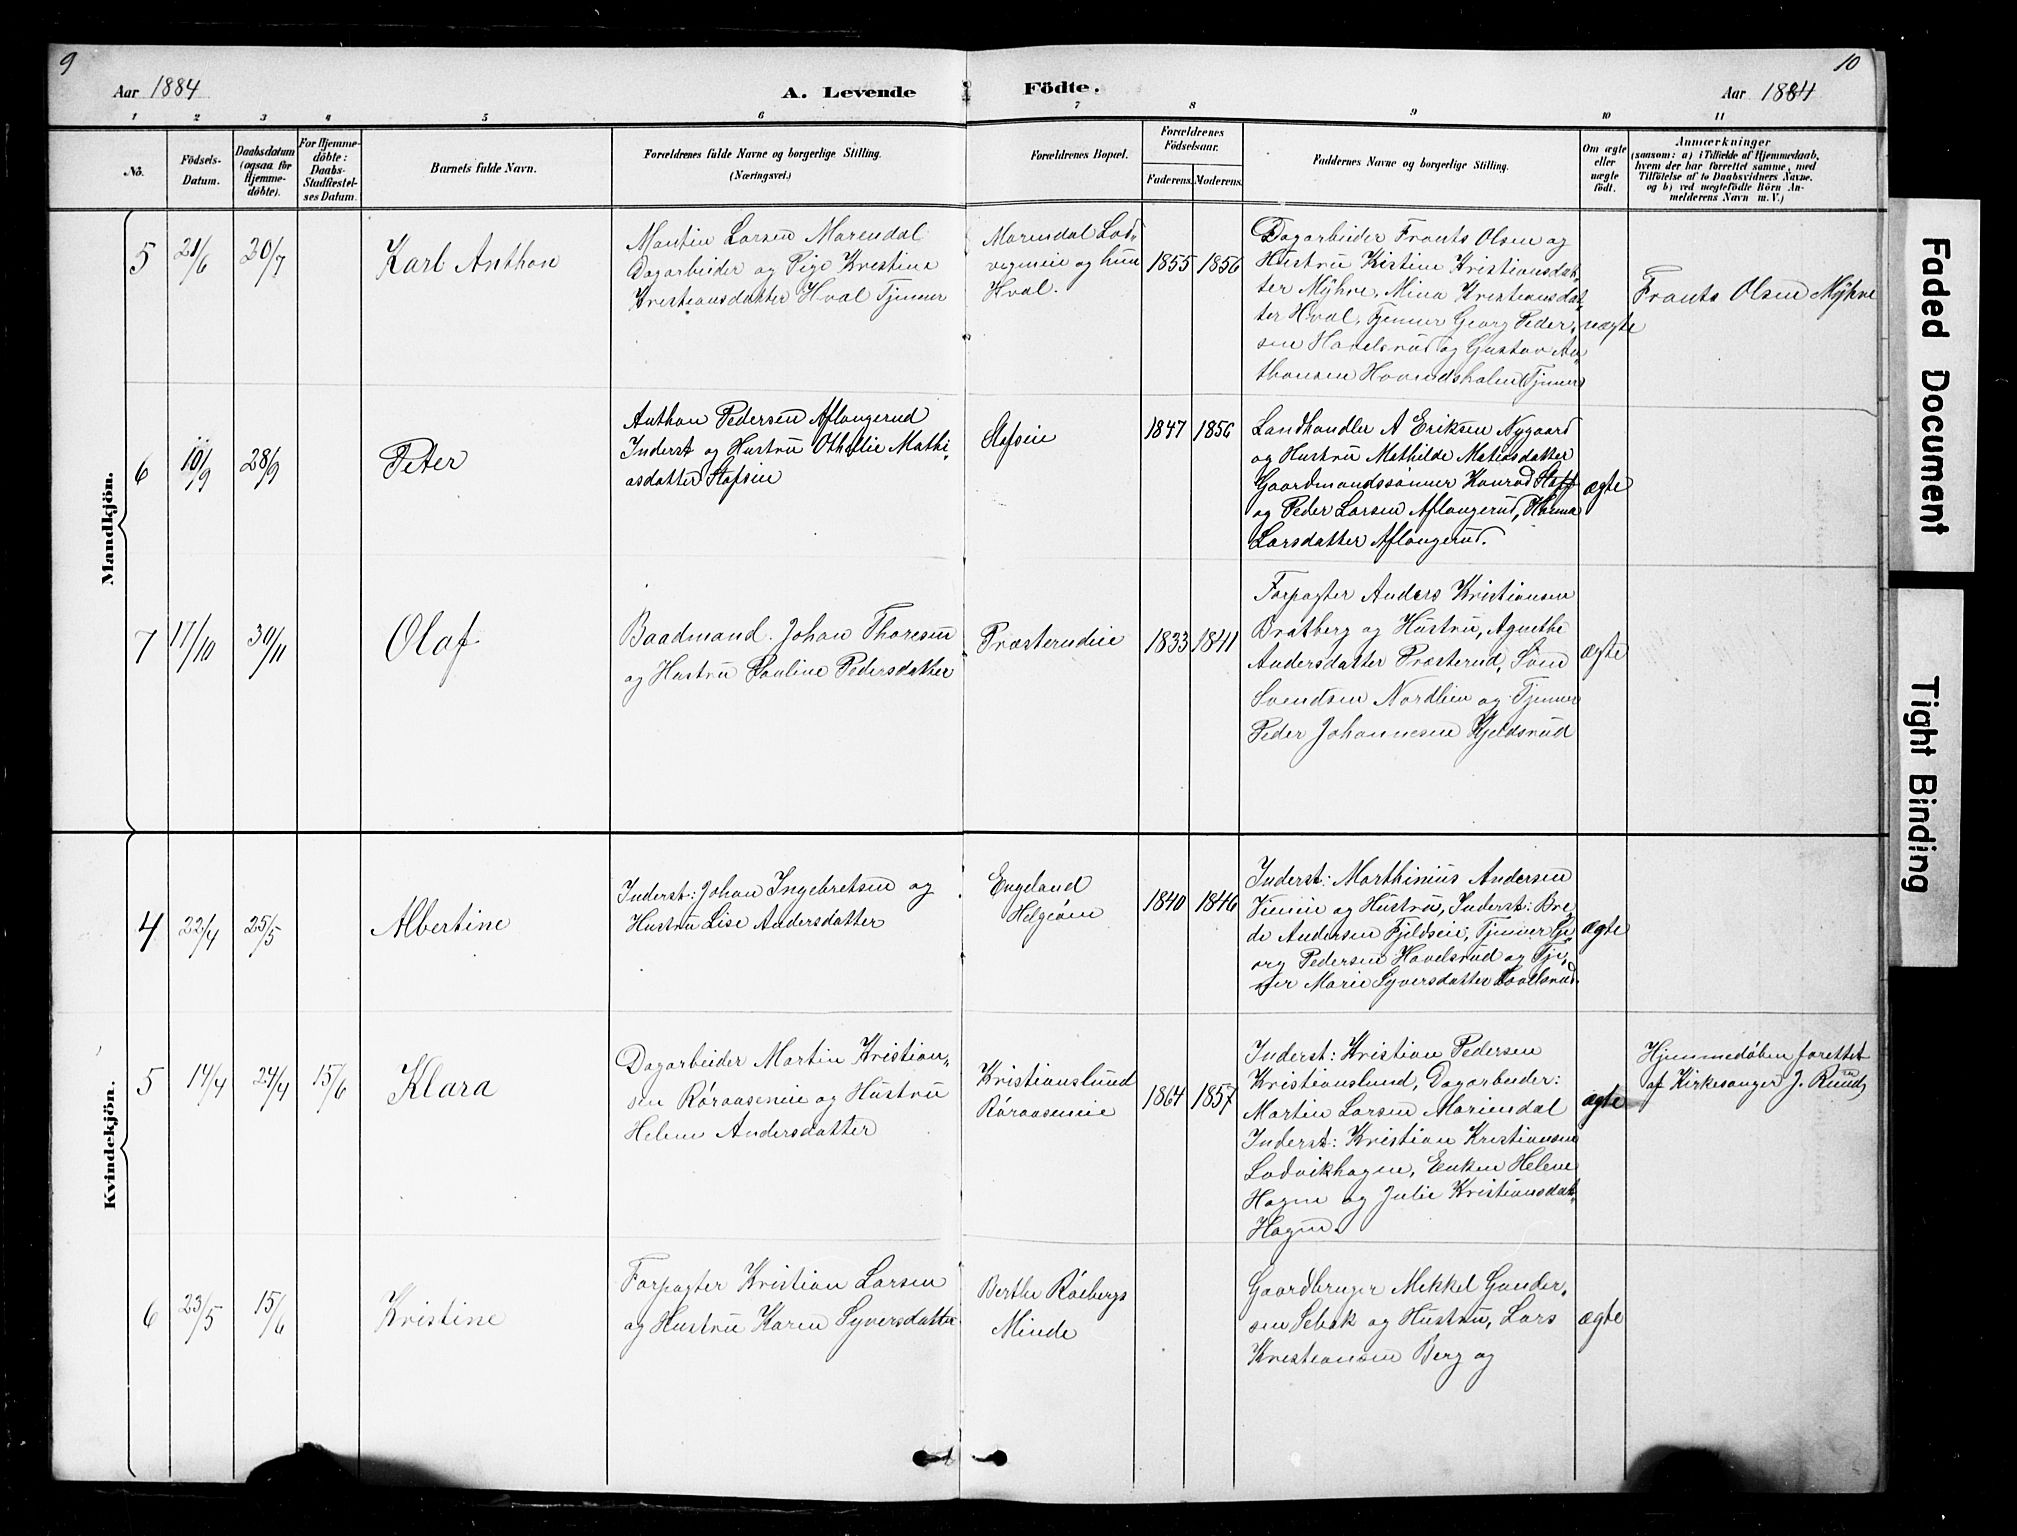 9
10
Aar 1884
A. Levende
Födte.
Aar 1884
1 2 3 4 5 6 7 8 9 10 11
No.
Födsels-
Datum.
Daabsdatum
(ogsaa for
Hjemme-
döbte).
For Hjemme-
döbte:
Daabs-
Stadfæstel-
ses Datum.
Barnets fulde Navn.
Forældrenes fulde Navne og borgerlige Stilling.
(Næringsvei.)
Forældrenes Bopæl.
Forældrenes
Födselsaar.
Faderens.
Moderens.
Faddernes Navne og borgerlige Stilling.
Om ægte
eller
uægte
født.
Anmærkninger
(saasom: a) i Tilfælde af Hjemmedaab,
hvem der har forrettet samme, med
Tilföielse af to Daabsvidners Navne.
og b) ved uægtefödte Börn An-
melderens Navn m. V.)
Mandkjön.
5
21/6
20/7
Karl Anthon
Martin Larsen Marendal
Dagarbeider og Pige Kristine
Kristiansdatter Hval Tjener
Marendal Lod-
vigneie og hun
Hval.
1855
1856
Dagarbeider Frants Olsen og
Hustru Kistine Kristiansdat-
ter Myhre, Mina Kristiansdat
ter Hval, Tjener Georg Peder-
sen Havelsrud og Gustav An-
thonsen Hovindsholm Tjener
uægte
Frants Olsen Myhre
6
10/9
28/9
Peter
Anthon Pedersen Aflangerud
Inderst og Hustru Othelie Mathi-
asdatter Stafseie
Stafseie
1847
1856
Landhandler A Eriksen Nygaard
og Hustru Mathilde Matiasdatter
Gaardmandssønner Konrad Staff
og Peder Larsen Aflangerud, Hanna
Larsdatter Aflangerud.
ægte
7
17/10
30/11
Olaf
Baadmand Johan Thoresen
og Hustru Pauline Pedersdatter
Præsterudeie
1833
1841
Forpagter Anders Kristiansen
Bratberg og Hustru, Agnethe
Andersdatter Præsterud, Sven
Svendsen Nordlien og Tjener
Peder Johannesen Kjeldsrud
ægte
Kvindekjön.
4
22/4
25/5
Albertine
Inderst: Johan Ingebretsen og
Hustru Lise Andersdatter
Engeland
Helgøen
1840
1846
Inderst: Marthinius Andersen
Vieneie og Hustru, Inderst: Bre
de Andersen Fjeldseie, Tjener Ge
org Pedersen Havelsrud og Tje-
ner Marie Syversdatter Hovelsrud
ægte
5
14/4
24/4
15/6
Klara
Dagarbeider Martin Kristian-
sen Røraaseneie og Hustru
Helene Andersdatter
Kristianslund
Røraaseneie
1864
1857
Inderst: Kristian Pedersen
Kristianslund, Dagarbeider:
Martin Larsen Mariendal
Inderst: Kristian Kristiansen
Lodvikhagen, Enken Helene
Hagen og Julie Kristiansdat-
Hagen.
ægte
Hjemmedøben forettet
af Kirkesanger J. Rund
6
23/5
15/6
Kristine
Forpagter Kristian Larsen
og Hustru Karen Syversdatter
Berthe Røebergs
Minde
Gaardbruger Mekkel Gunder-
sen Sebak og Hustru, Lars
Kristiansen Berg og
ægte
Faded Document
Tight Binding